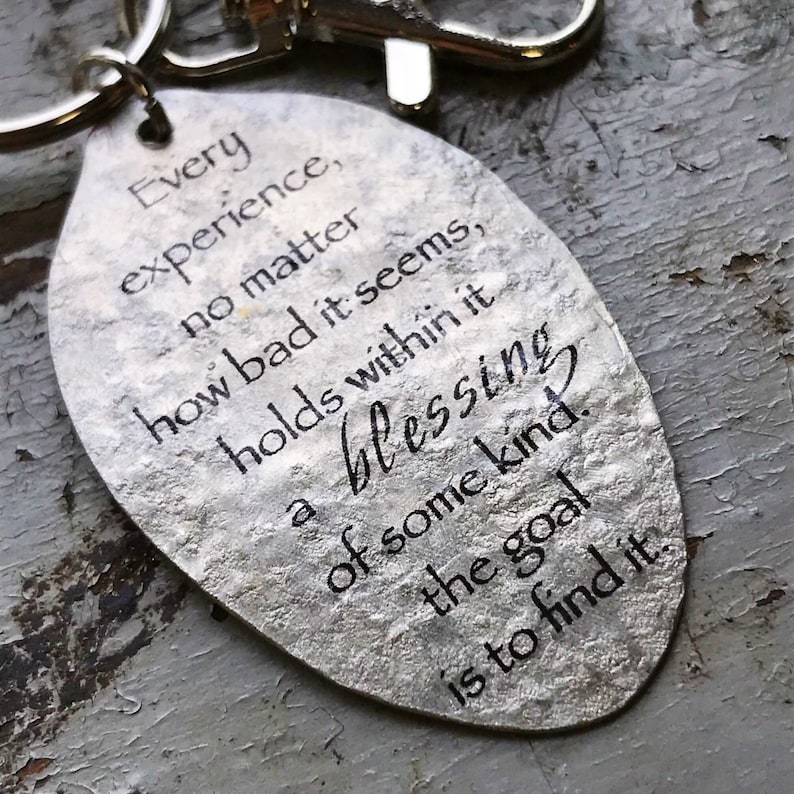 Every
experience,
no matter
how bad it seems,
holds within it
a blessing
of some kind.
the goal
is to find it.